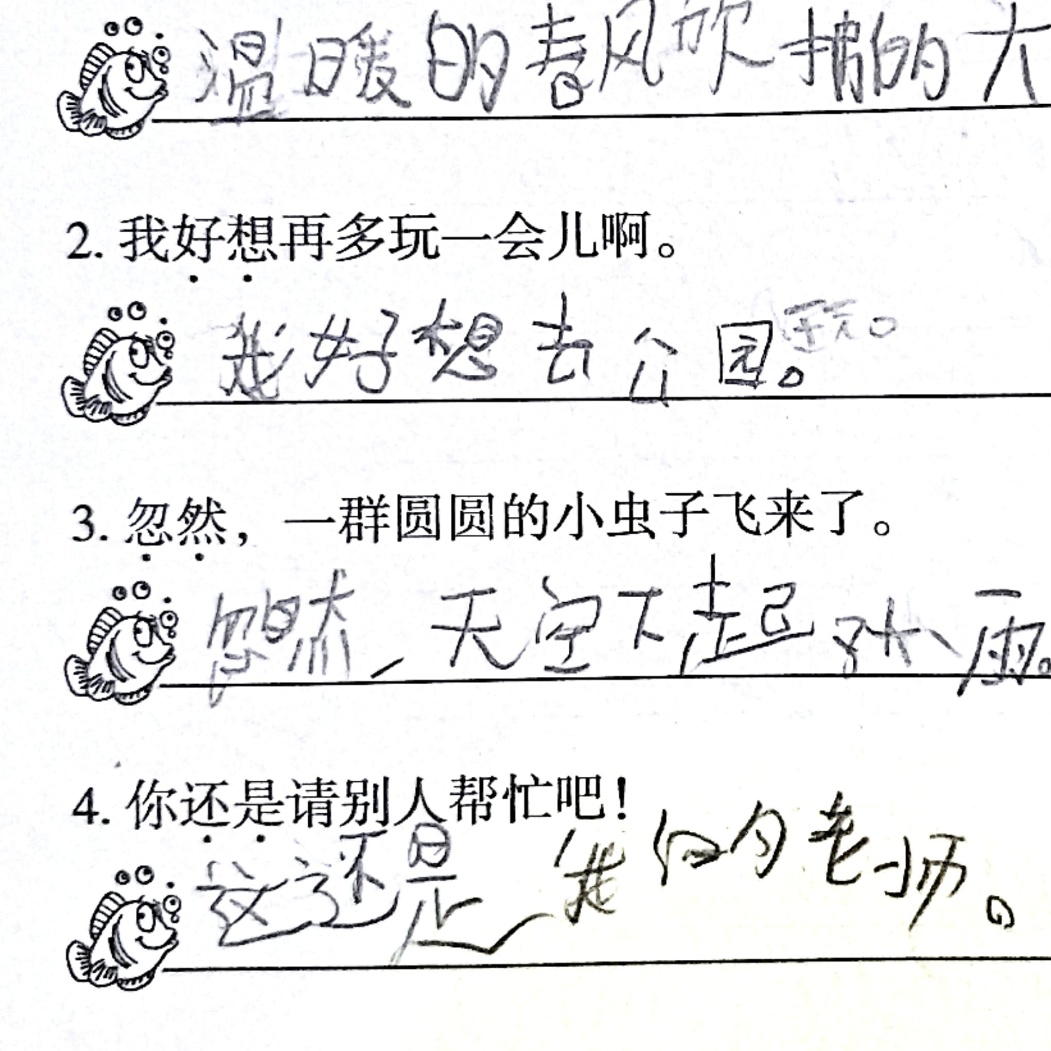 温暖的春风吹拂的大
2. 我好想再多玩一会儿啊。
我好想去公园。玩。
3. 忽然，一群圆圆的小虫子飞来了。
忽然，天空下起 雨。
4. 你还是请别人帮忙吧！
这还是我们的老师。